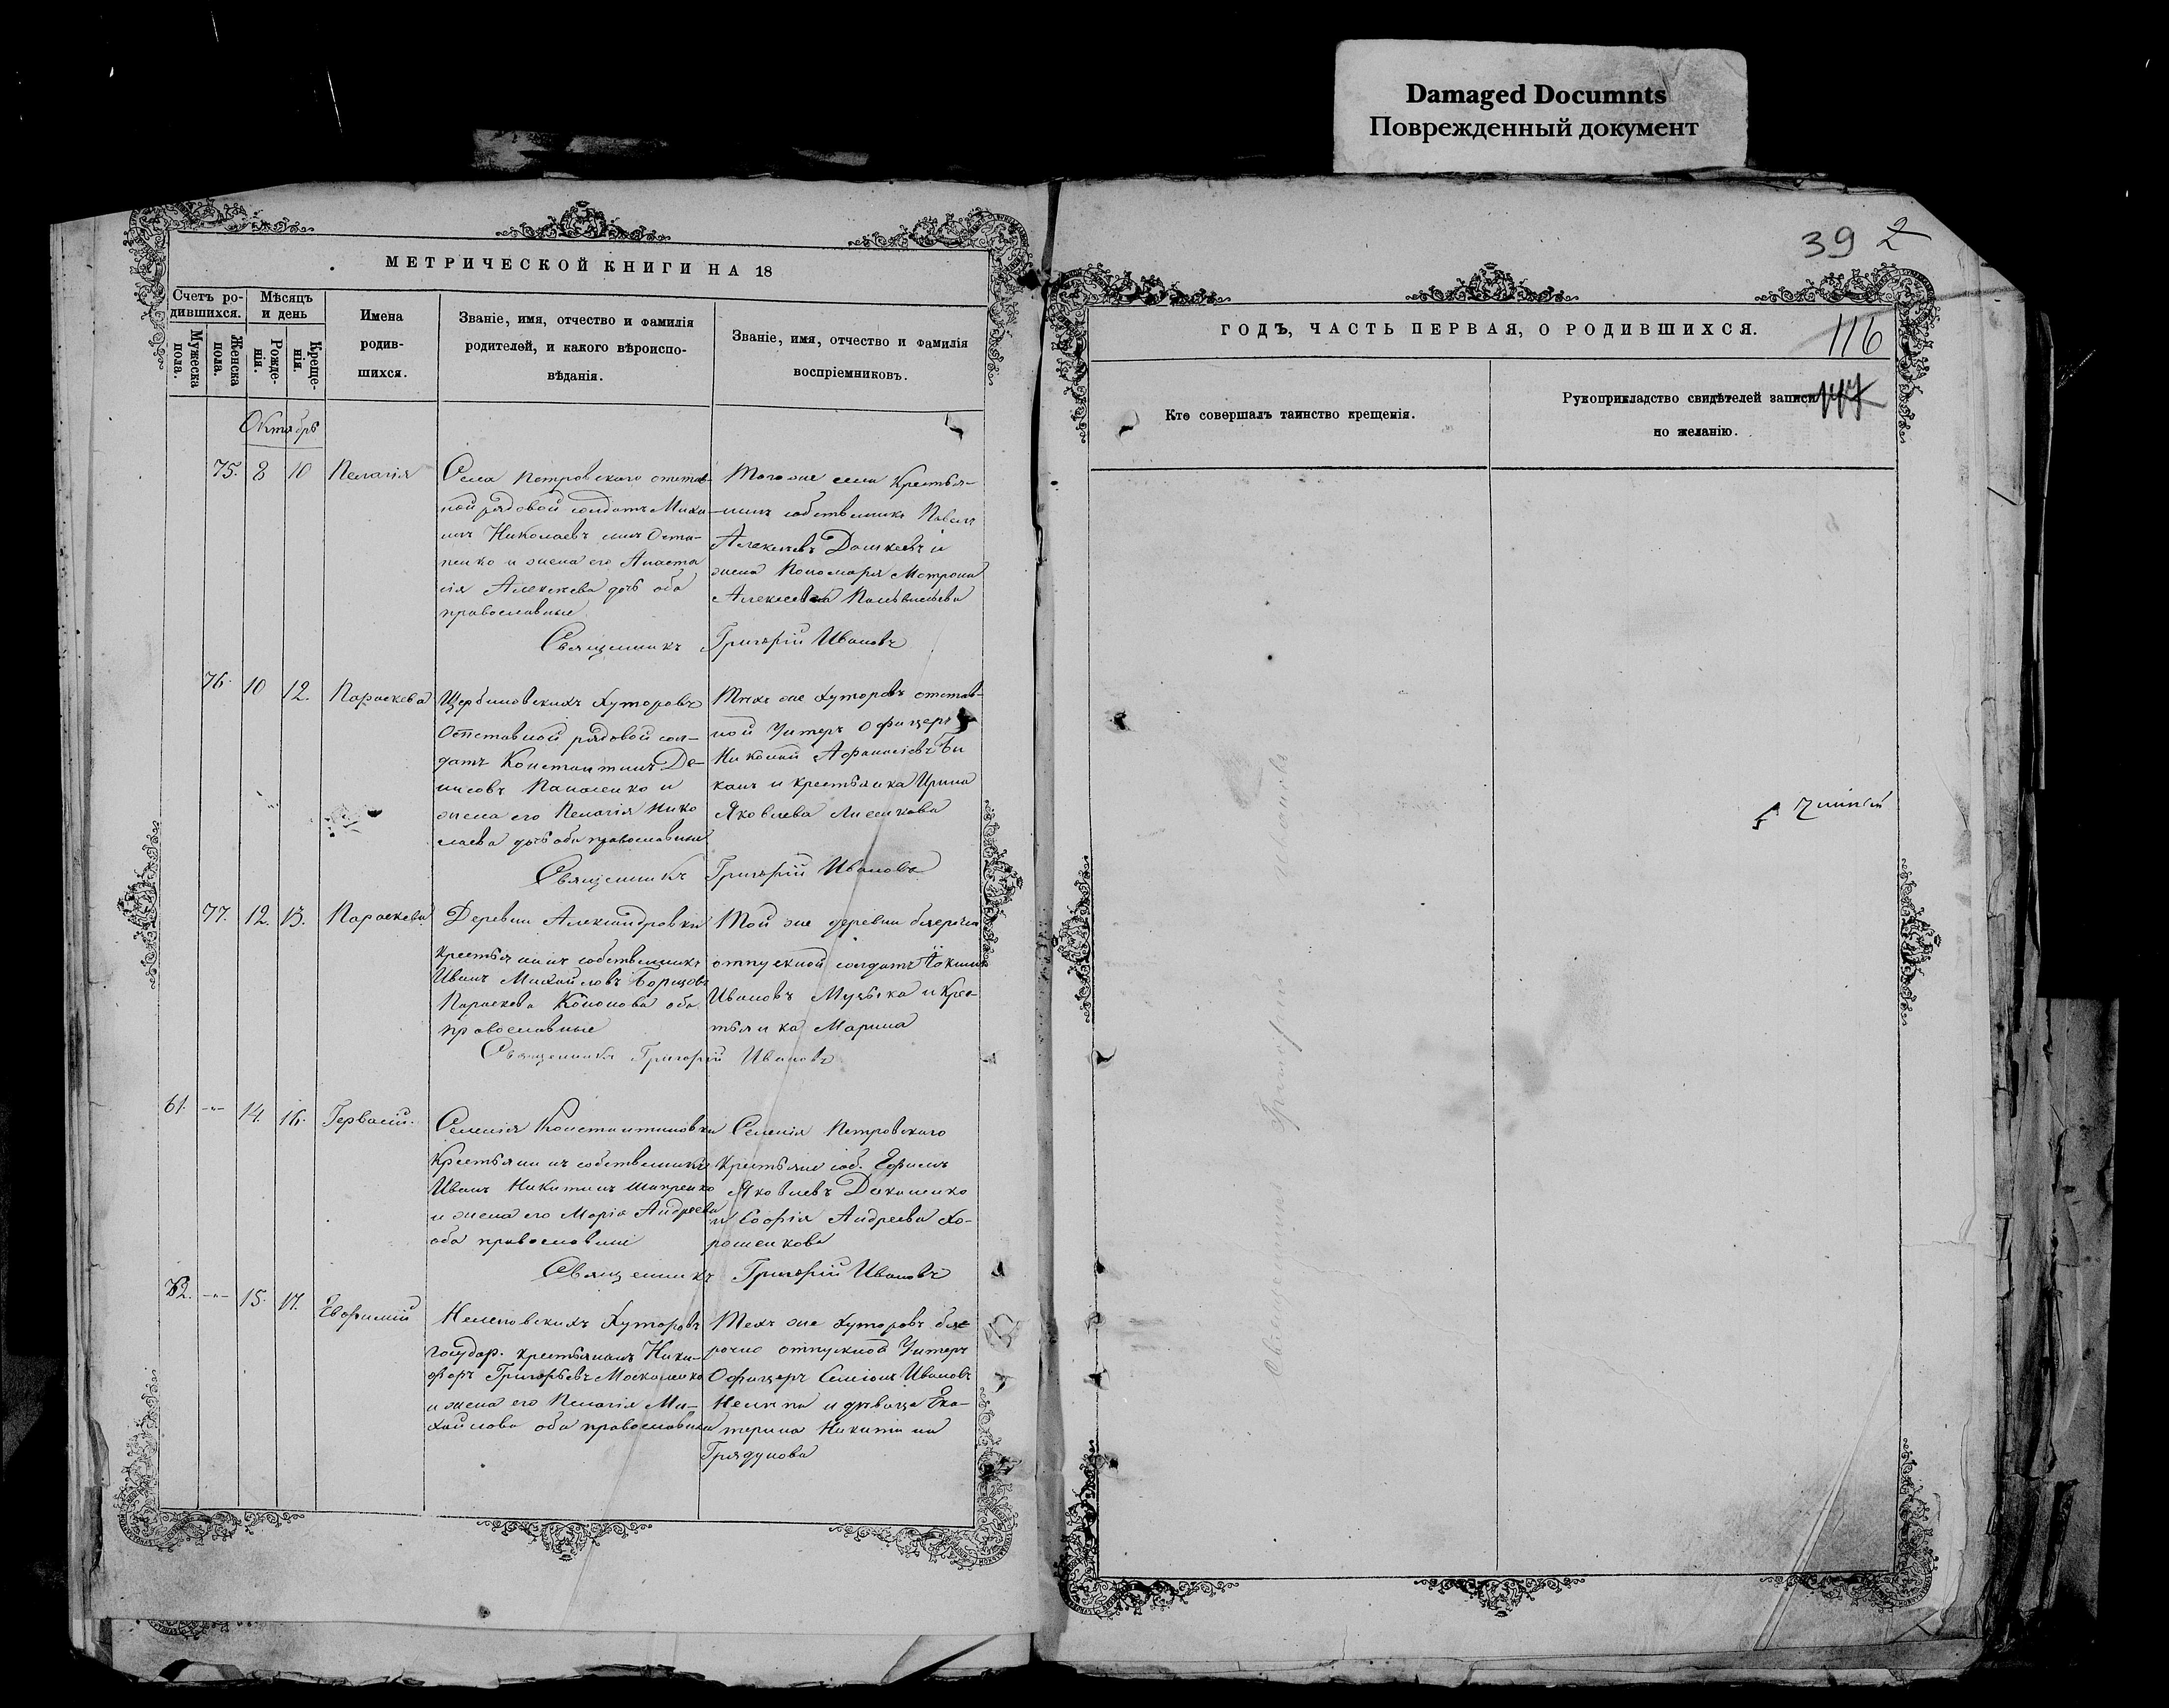 Damaged Documnts
Поврежденный документ
МЕТРИЧЕСКОЙ КНИГИ НА 18
Счетъ ро-
дившихся.
Мужеска пола.
Женска пола.
Мѣсяцъ
и день
Рожде-
нія.
Креще-
нія.
Имена
родив-
шихся.
Званіе, имя, отчество и фамилія
родителей, и какого вѣроиспо-
вѣданія.
Званіе, имя, отчество и фамилія
воспріемниковъ.
Октябрь
75. 8 10 Пелагія
Села Петровскаго отстав-
ной рядовой солдатъ Миха
илъ Николаевъ сынъ Оста-
пенко и жена его Анаста
сія Алексѣева дочь оба
православные
Того же села Крестья-
нинъ собственникъ Павелъ
Алексѣевъ Дашкевъ и
жена Пономаря Матрона
Алексеевна
Священникъ Григорій Ивановъ
76. 10 12. Параскева
Щербиновскихъ Хуторовъ
Отставной рядовой сол-
датъ Константинъ Де-
нисовъ Панасенко и
жена его Пелагія Нико
лаева дочь оба православные
Тѣхъ же Хуторовъ отстав-
ной Унтеръ Офицеръ
Николай Афанасіевъ Би
канъ и крестьянка Ирина
Яковлева Лисенкова
Священникъ Григорій Ивановъ
77. 12. 13. Параскева
Деревни Александровки
Крестьянинъ собственникъ
Иванъ Михайловъ Борисовъ
Параскева Кононова оба
православные
Той же деревни безсрочно
отпускной солдатъ
Ивановъ и Крес-
тьянка Марина
Священникъ Григорій Ивановъ
61. -"- 14. 16. Гервасій.
Селенія Константиновки
Крестьянинъ собственникъ
Иванъ Никитинъ
и жена его Марія Андреева
оба православніи
Селенія Петровскаго
Крестьяне соб. Ефимъ
Яковлевъ
и Софія Андреева Хо-
рошенкова
Священникъ Григорій Ивановъ
62. -"- 15. 17. Евфимій
Нелеповскихъ Хуторовъ
Государ. крестьянинъ Ники-
форъ Григорьевъ Москаленко
и жена его Пелагія Ми-
хайлова оба православныи
Тѣхъ же хуторовъ безс
рочно отпускной Унтеръ
Офицеръ Семіонъ Ивановъ
Нелепа и дѣвица Ека-
терина Никитина
Грядунова
39 2
ГОДЪ, ЧАСТЬ ПЕРВАЯ, О РОДИВШИХСЯ.
116
Кто совершалъ таинство крещенія.
Рукоприкладство свидѣтелей записи
по желанію.
Священникъ Григорій Ивановъ